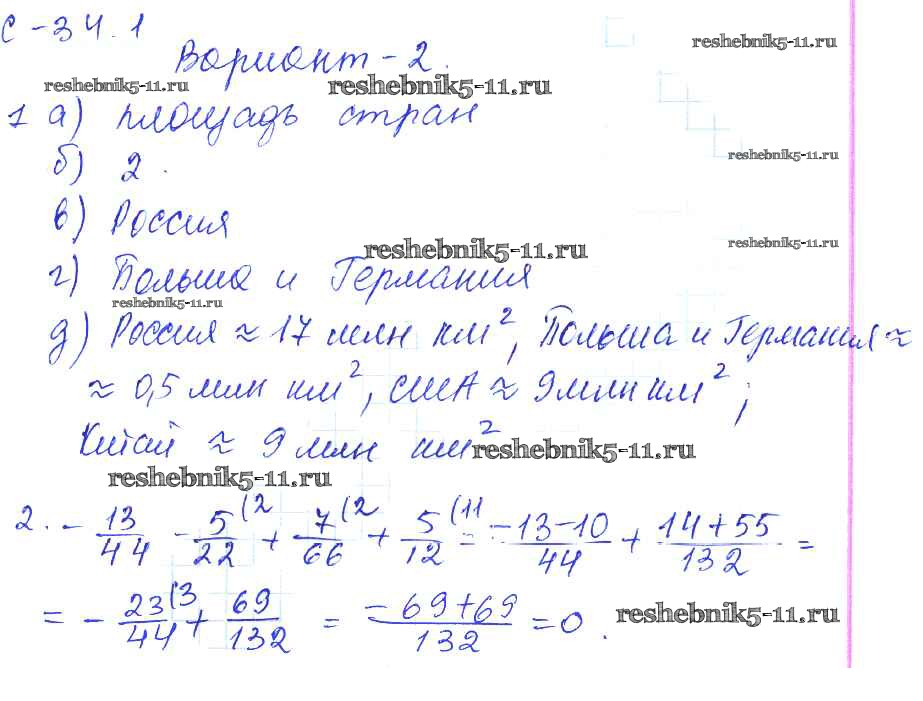 С-34.1
reshebnik5-11.ru
Вариант-2.
reshebnik5-11.ru reshebnik5-11.ru
1 а) площадь стран
reshebnik5-11.ru
б) 2.
в) Россия
reshebnik5-11.ru reshebnik5-11.ru
г) Польша и Германия
reshebnik5-11.ru
д) Россия ≈ 17 млн км², Польша и Германия ≈
≈ 0,5 млн км², США ≈ 9 млн км²;
Китай ≈ 9 млн км²
reshebnik5-11.ru
reshebnik5-11.ru
2. -13/44 - 5/22(2 + 7/66(2 + 5/12(11 = (-13-10)/44 + (14+55)/132 =
= -23/44(3 + 69/132 = (-69+69)/132 = 0.
reshebnik5-11.ru